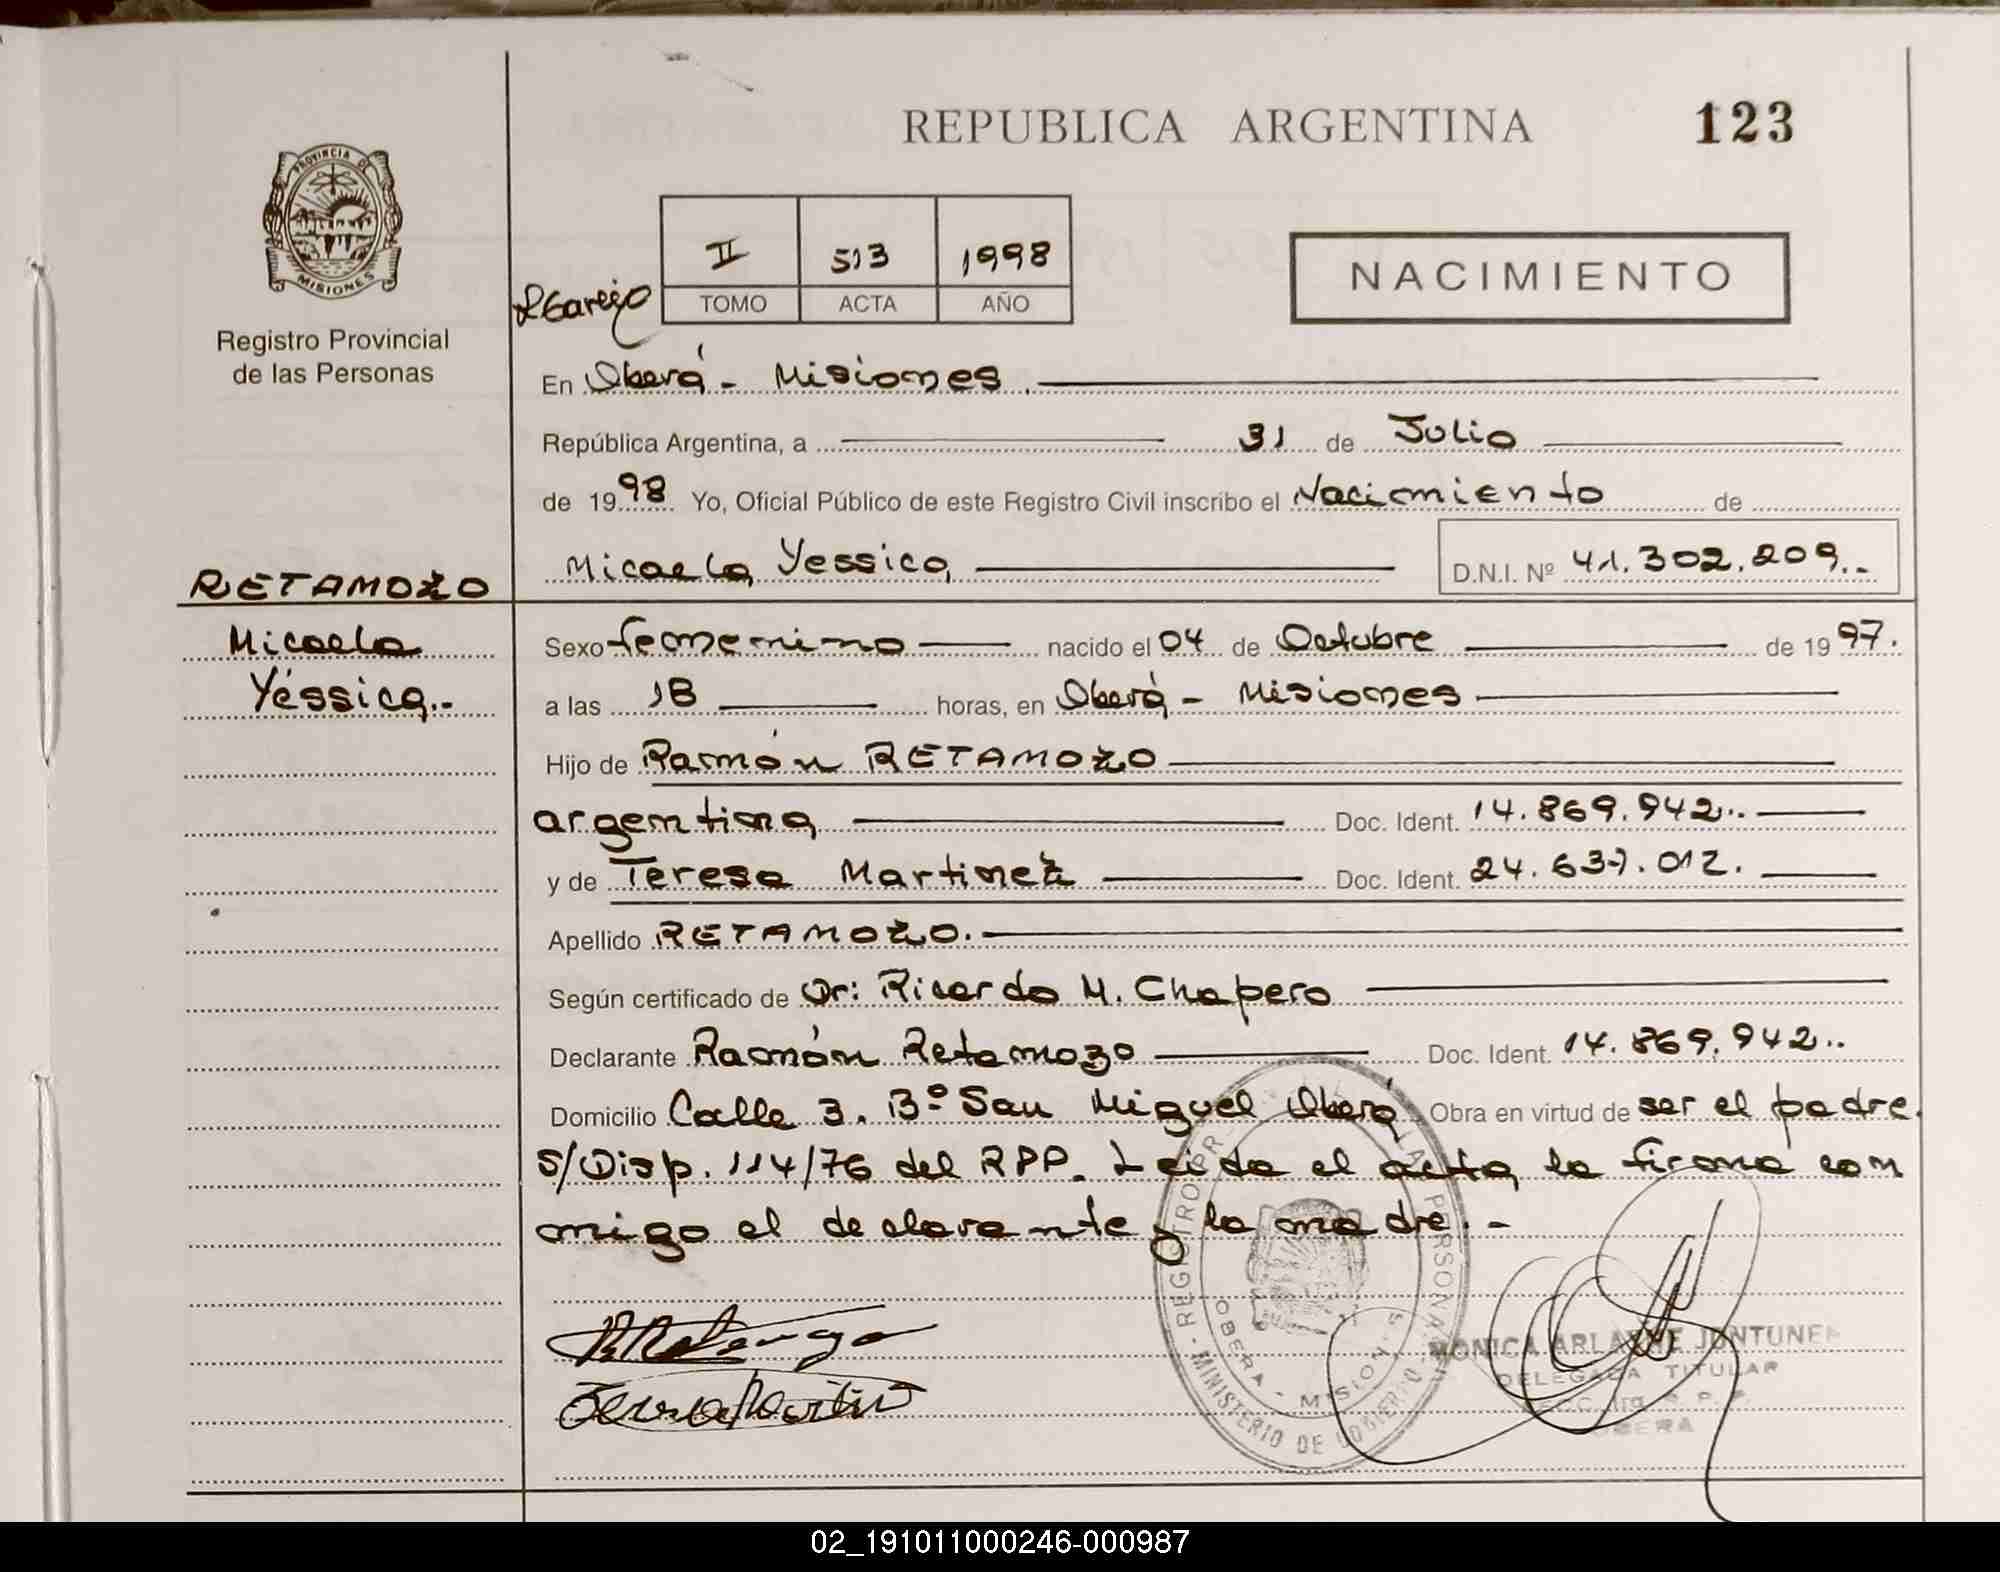 REPUBLICA ARGENTINA 123
PROVINCIA DE
MISIONES
Registro Provincial
de las Personas
II 513 1998
TOMO ACTA AÑO
NACIMIENTO
En Oberá - Misiones
República Argentina, a 31 de Julio
de 1998 Yo, Oficial Público de este Registro Civil inscribo el Nacimiento de
Micaela Yessica D.N.I. Nº 41.302.209.-
RETAMOZO
Micaela
Yéssica.-
Sexo femenino nacido el 04 de Octubre de 1997.
a las 18 horas, en Oberá - Misiones
Hijo de Ramón RETAMOZO
argentina Doc. Ident. 14.869.942..
y de Teresa Martinez Doc. Ident. 24.637.012.
Apellido RETAMOZO.
Según certificado de Dr: Ricardo M. Chapero
Declarante Ramón Retamozo Doc. Ident. 14.869.942..
Domicilio Calle 3. Bº San Miguel Oberá Obra en virtud de ser el padre
s/Disp. 114/76 del RPP. Leida el acta, la firma con
migo el declarante y la madre.-
REGISTRO PR LAS PERSONAS
OBERA - MISIONES
MINISTERIO DE GOBIERNO
MONICA ARLAENE JUNTUNEN
DELEGADA TITULAR
OBERA
02_191011000246-000987